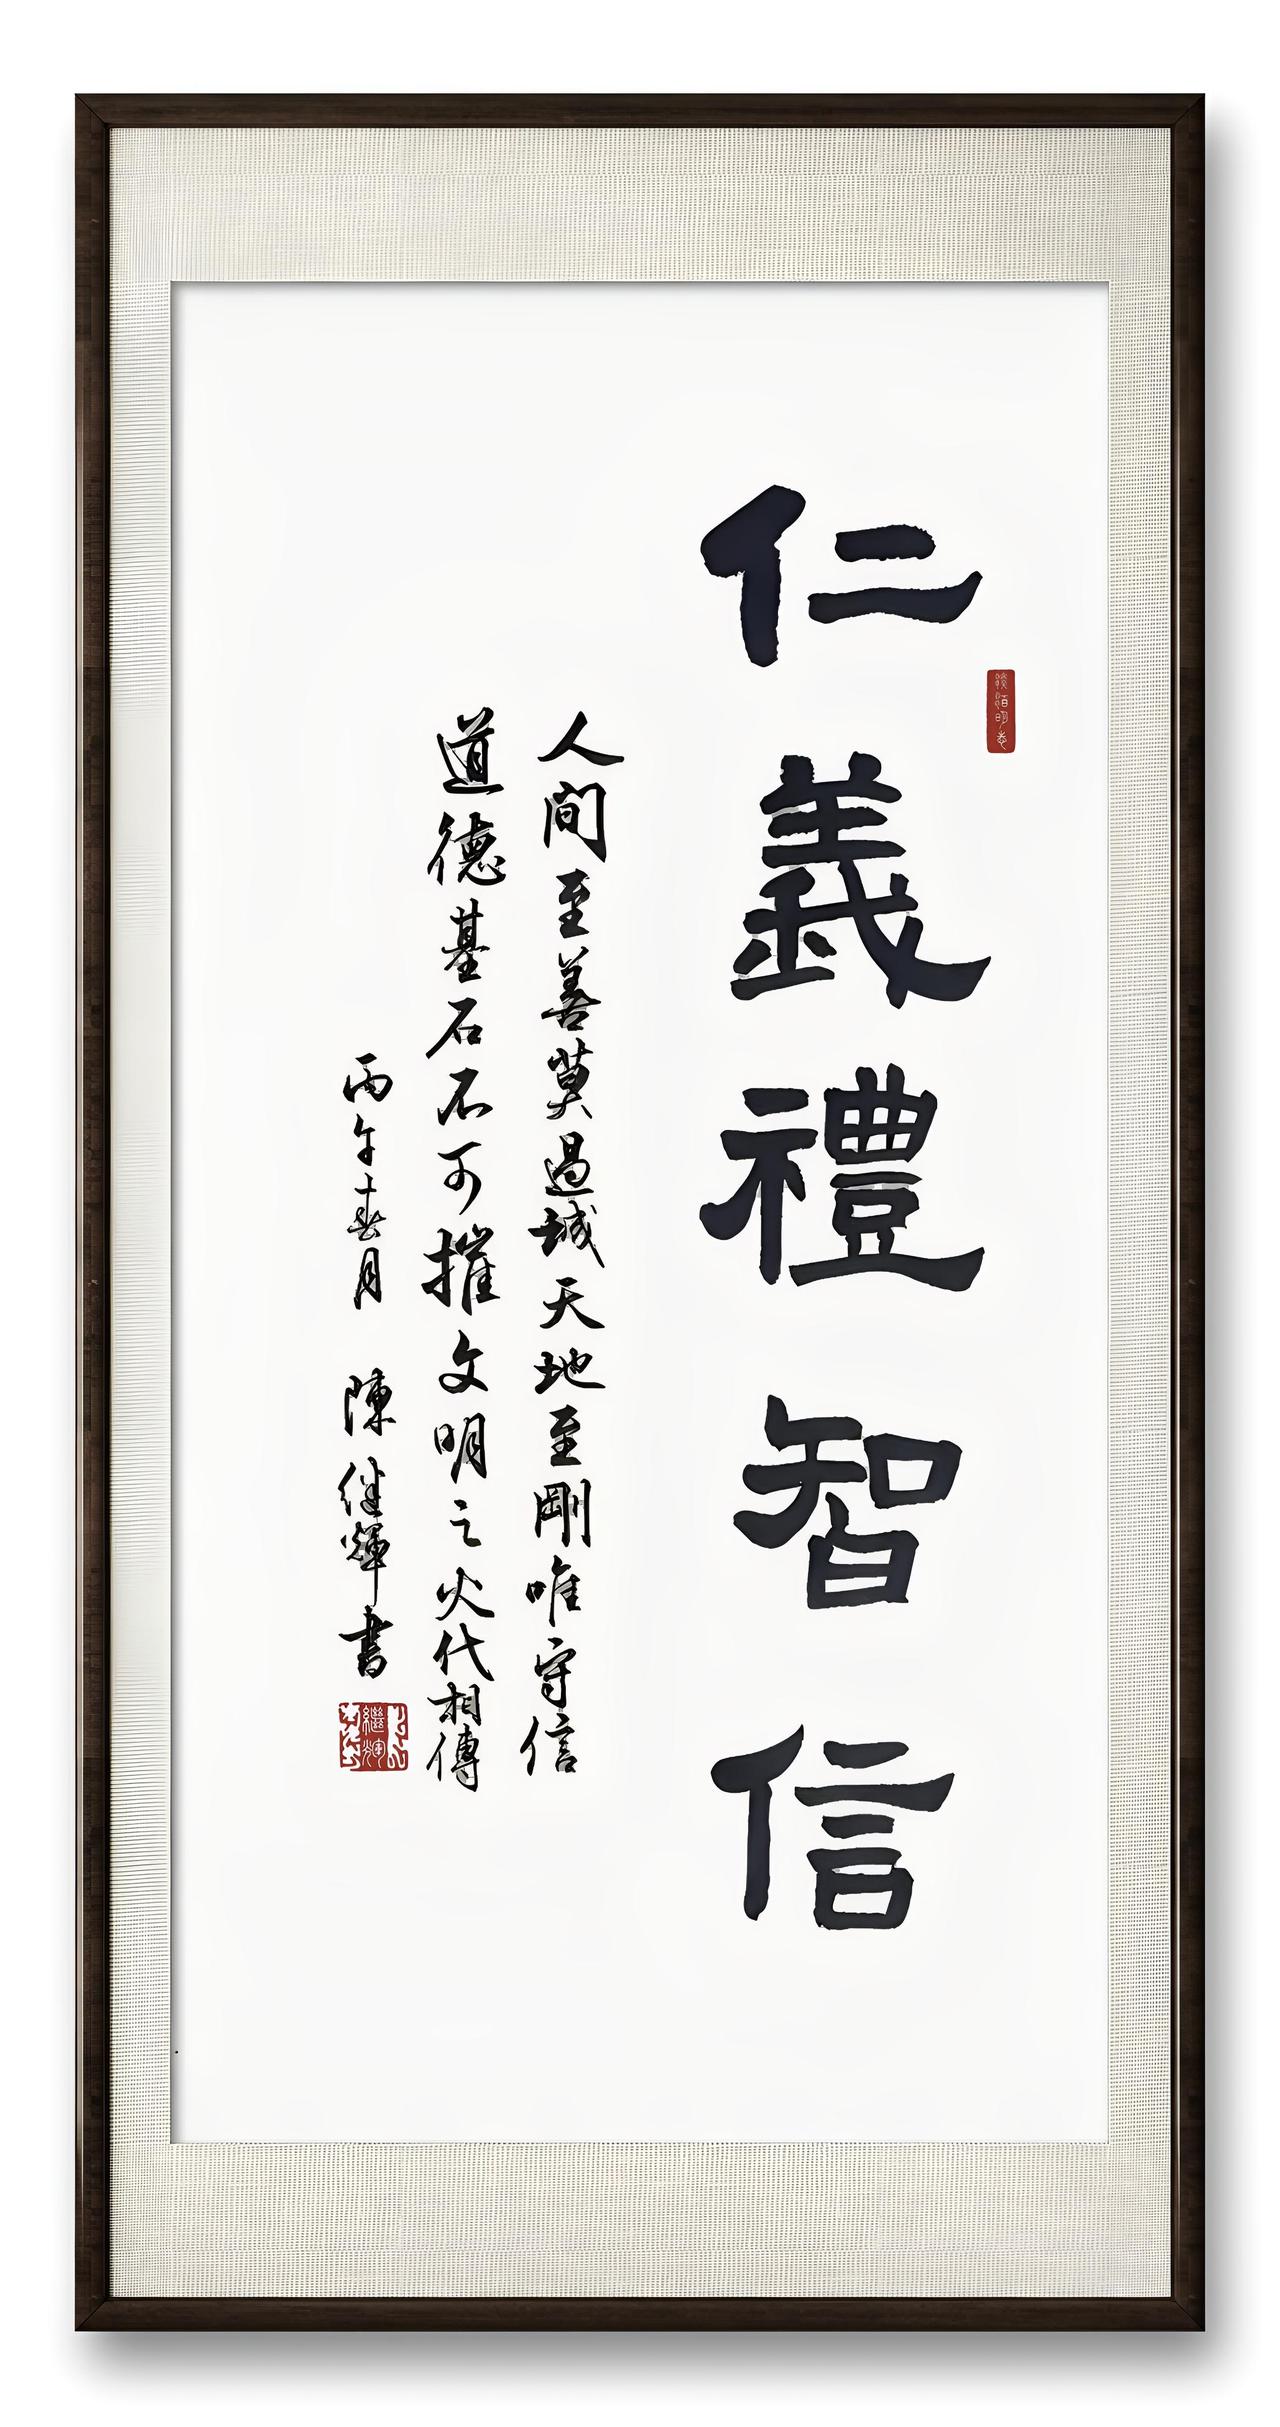 仁義禮智信
人間至善莫過誠天地至剛唯守信
道德基石不可摧文明之火代相傳
丙午春月 陳繼輝書